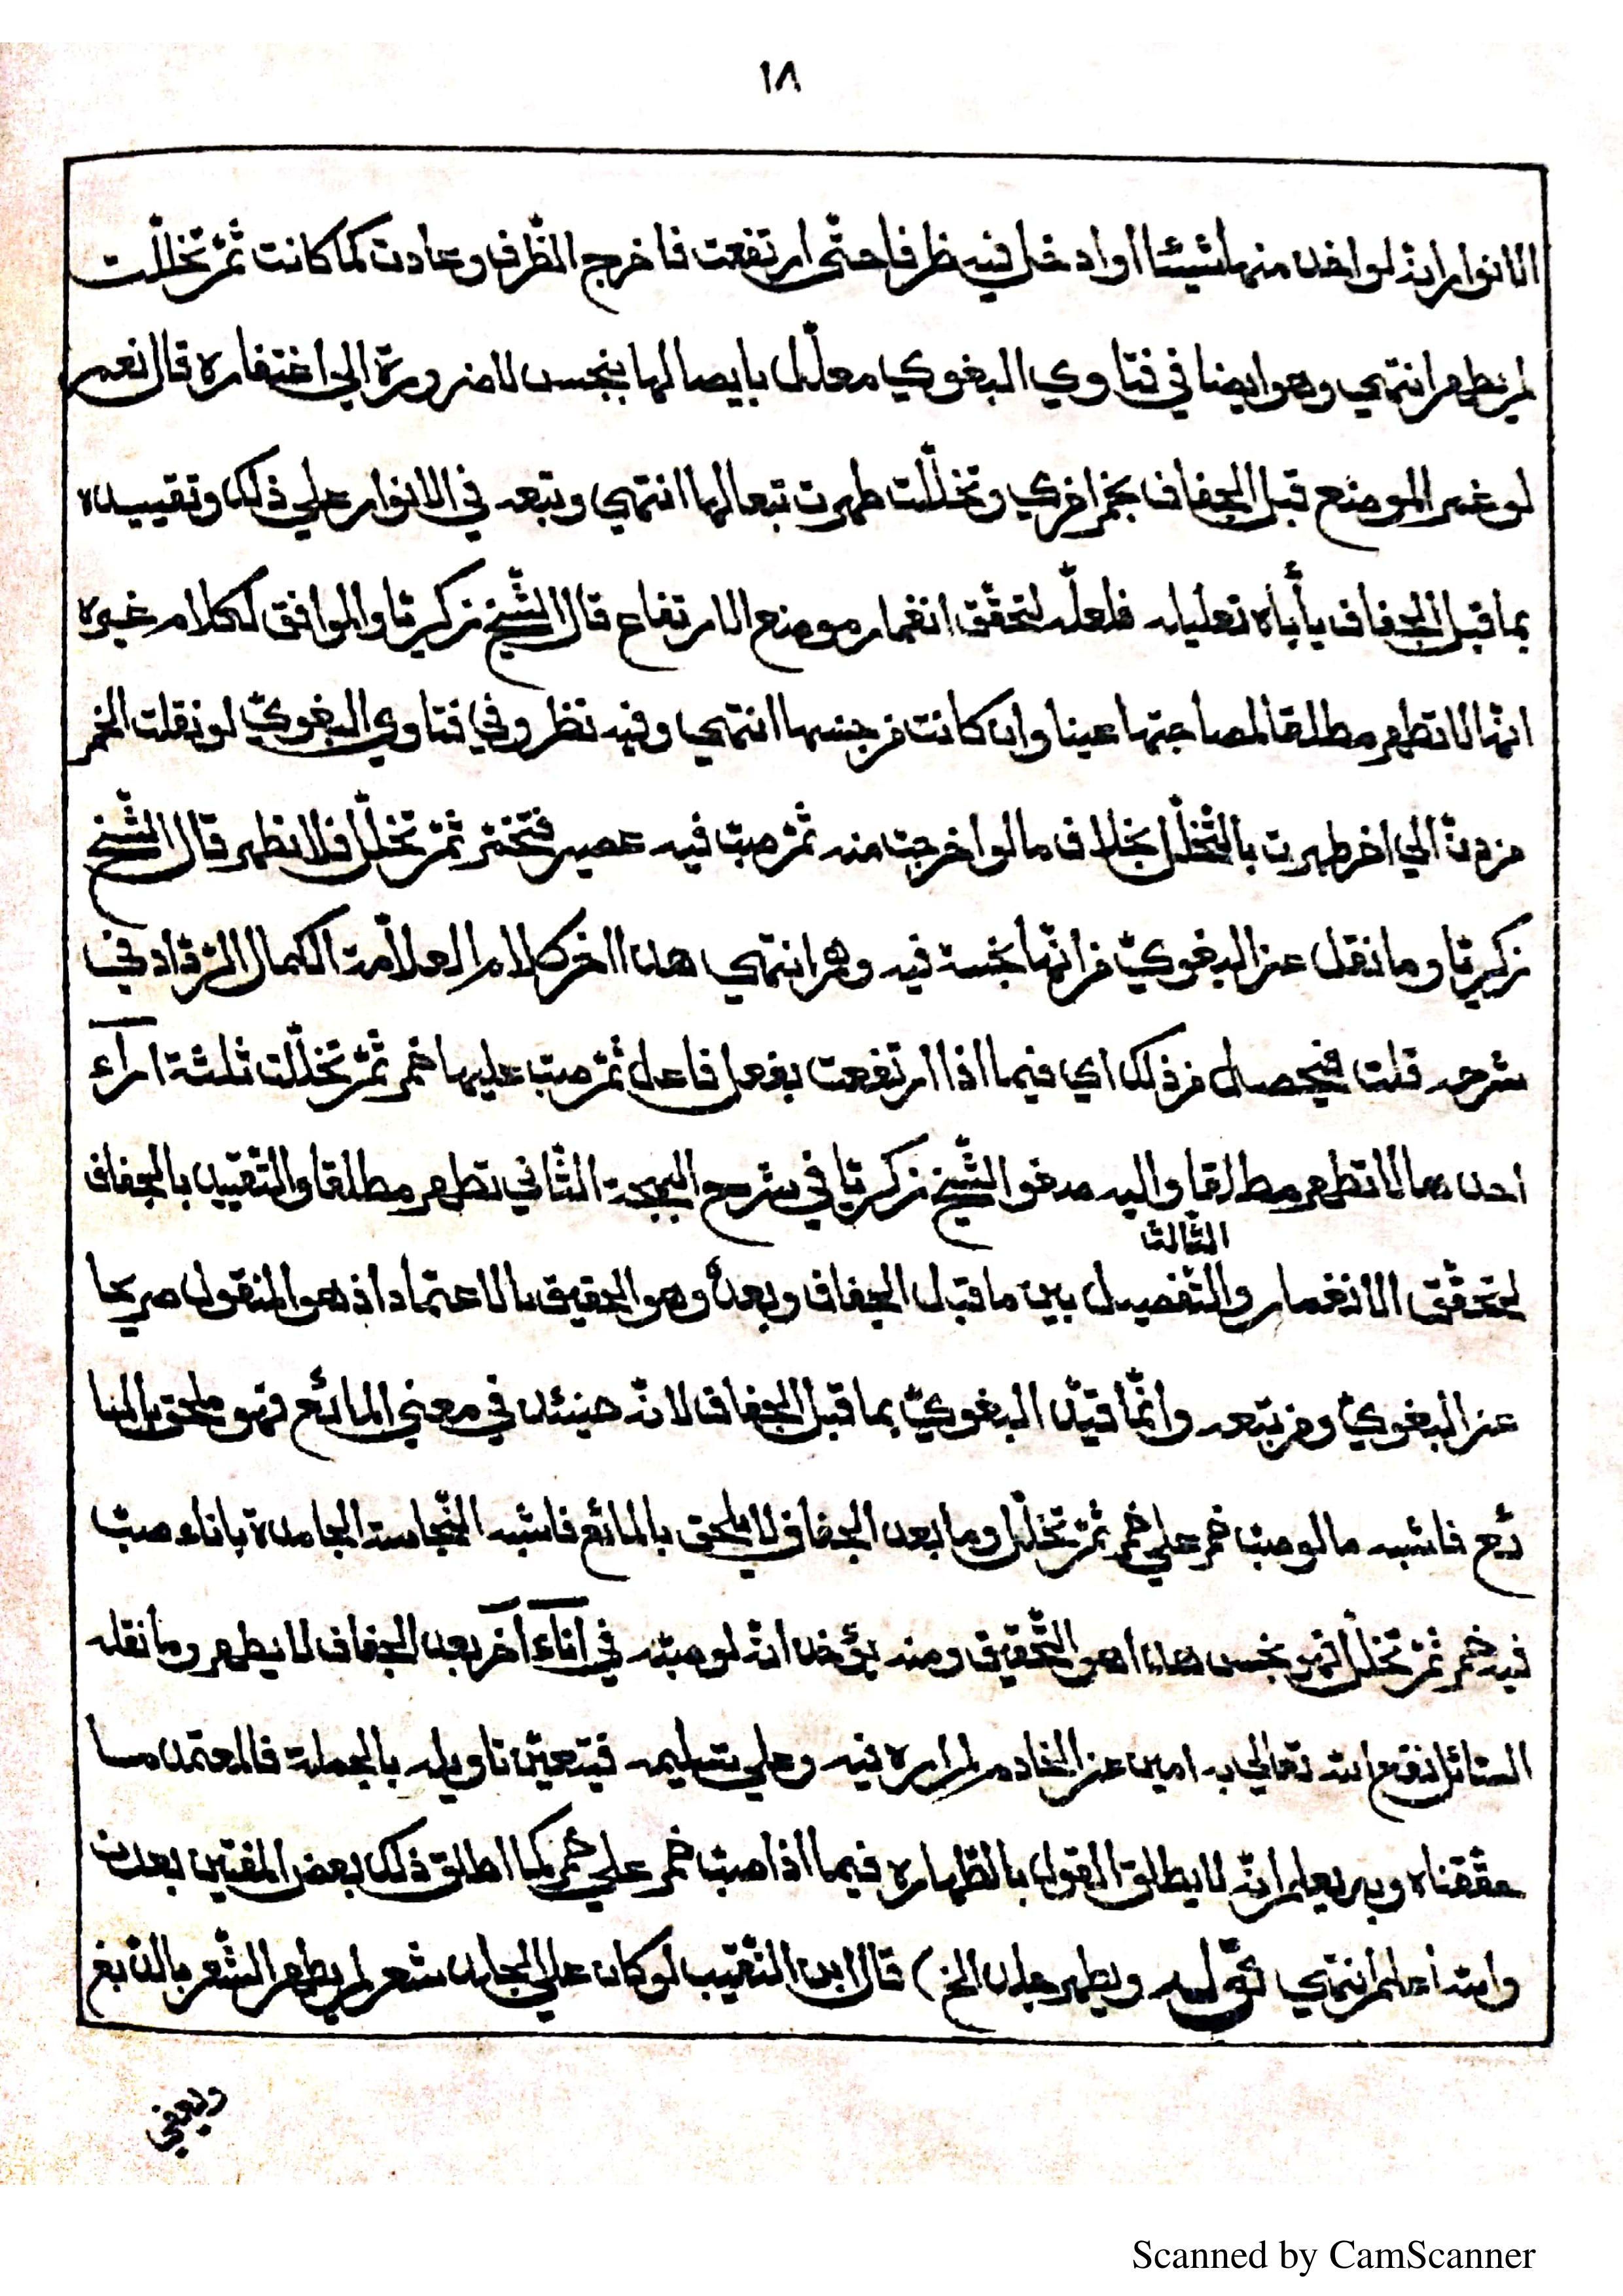 ١٨
الانوار انّه لو اخذ منها شيئا او ادخل فيه ظرفا حتّى ارتفعت فاخرج الظّرف وعادت كما كانت ثمّ تخلّلت
لم تطهر انتهي وهو ايضا في فتاوي البغوي معلّل بايصالها بنجس لا ضرورة الي اغتفاره قال نعم
لو غمر الموضع قبل الجفاف بخمر اخري وتخلّلت طهرت تبعا لها انتهي وتبعه في الانوار علي ذلك وتقييده
بما قبل الجفاف يأباه تعليله فلعلّه لتحقّق انغمار موضع الارتفاع قال الشّيخ زكريّا والموافق لكلام غيره
انّها لا تطهر مطلقا لمصاحبتها عينا وان كانت من جنسها انتهي وفيه نظر وفي فتاوي البغويّ لو نقلت الخمر
من دنّ الي اخر طهرت بالتّخلّل بخلاف ما لو اخرجت منه ثمّ صبّ فيه عصير فتخمّر ثمّ تخلّل فلا تطهر قال الشّيخ
زكريّا وما نقل عن البغويّ من انّها نجسة فيه وهم انتهي هذا اخر كلام العلاّمة الكمال الردّاد في
شرحه قلت فيحصل من ذلك اي فيما اذا ارتفعت بفعل فاعل ثمّ صبّ عليها خمر ثمّ تخلّلت ثلثة آرآء
احدها لا تطهر مطلقا واليه صغو الشّيخ زكريّا في شرح البهجة الثّاني تطهر مطلقا والتّقييد بالجفاف
الثّالث
لتحقّق الانغمار والتّفصيل بين ما قبل الجفاف وبعده وهو الحقيق بالاعتماد اذ هو المنقول صريحا
عن البغويّ ومن تبعه وانّما قيّد البغويّ بما قبل الجفاف لانّه حينئذ في معني المائع فهو ملحق بالما
ئع فاشبه ما لو صبّ خمر علي خمر ثمّ تخلّل وما بعد الجفاف لا يلحق بالمائع فاشبه النّجاسة الجامدة باناء صبّ
فيه خمر ثمّ تخلّل فهو نجس هذا هو التّحقيق ومنه يؤخذ انّه لو صبّه في انآء آخر بعد الجفاف لا يطهر وما نقله
السّائل نفع الله تعالي به امين عن الخادم لم اره فيه وعلي تسليمه فيتعيّن تاويله بالجملة فالمعتمد ما
حقّقناه وبه يعلم انّه لا يطلق القول بالطّهارة فيما اذا صبّ خمر علي خمر كما اطلق ذلك بعض المفتين بعدن
والله أعلم انتهي قوله ويطهر جلد الخ) قال ابن النّقيب لو كان علي الجلد شعر لم يطهر الشّعر بالدّبغ
ويعفي
Scanned by CamScanner